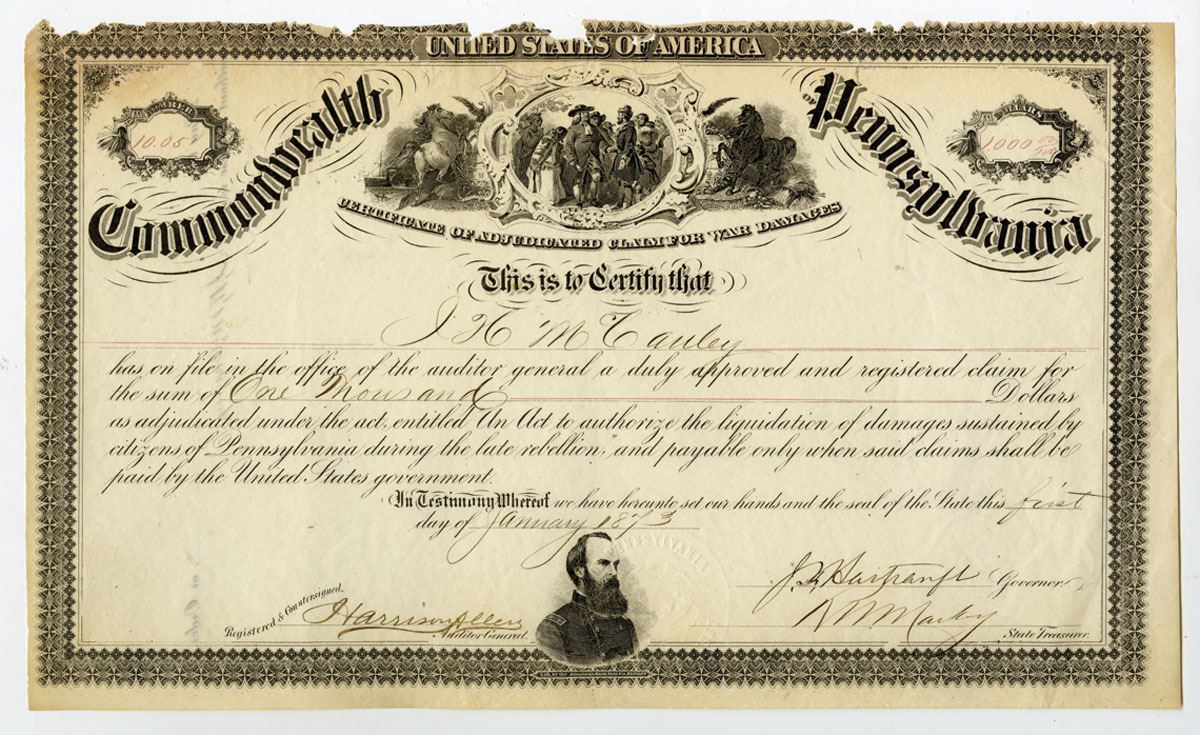 UNITED STATES OF AMERICA
Commonwealth Pennsylvania
NUMBER
10.05
DOLLARS
1000 00/100
CERTIFICATE OF ADJUDICATED CLAIM FOR WAR DAMAGES
This is to Certify that
J H McCauley
has on file in the office of the auditor general a duly approved and registered claim for
the sum of One Thousand Dollars
as adjudicated under the act, entitled "An Act to authorize the liquidation of damages sustained by
citizens of Pennsylvania during the late rebellion," and payable only when said claims shall be
paid by the United States government.
In Testimony Whereof we have hereunto set our hands and the seal of the State this first
day of January 1873
PENNSYLVANIA
J F Hartranft Governor.
Registered & Countersigned.
Harrison Allen
Auditor General.
R W Mackey
State Treasurer.